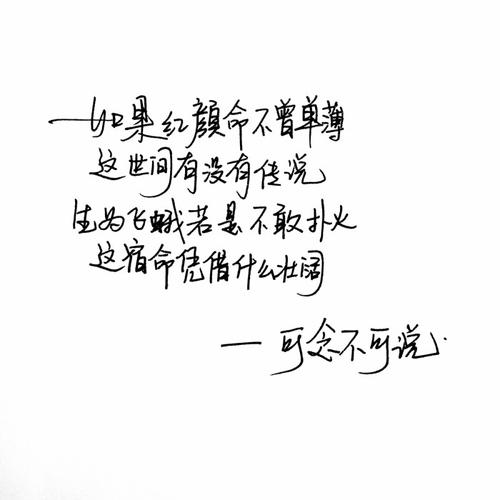 如果红颜命不曾单薄
这世间有没有传说
生为飞蛾若是不敢扑火
这宿命凭借什么壮阔
— 可念不可说.